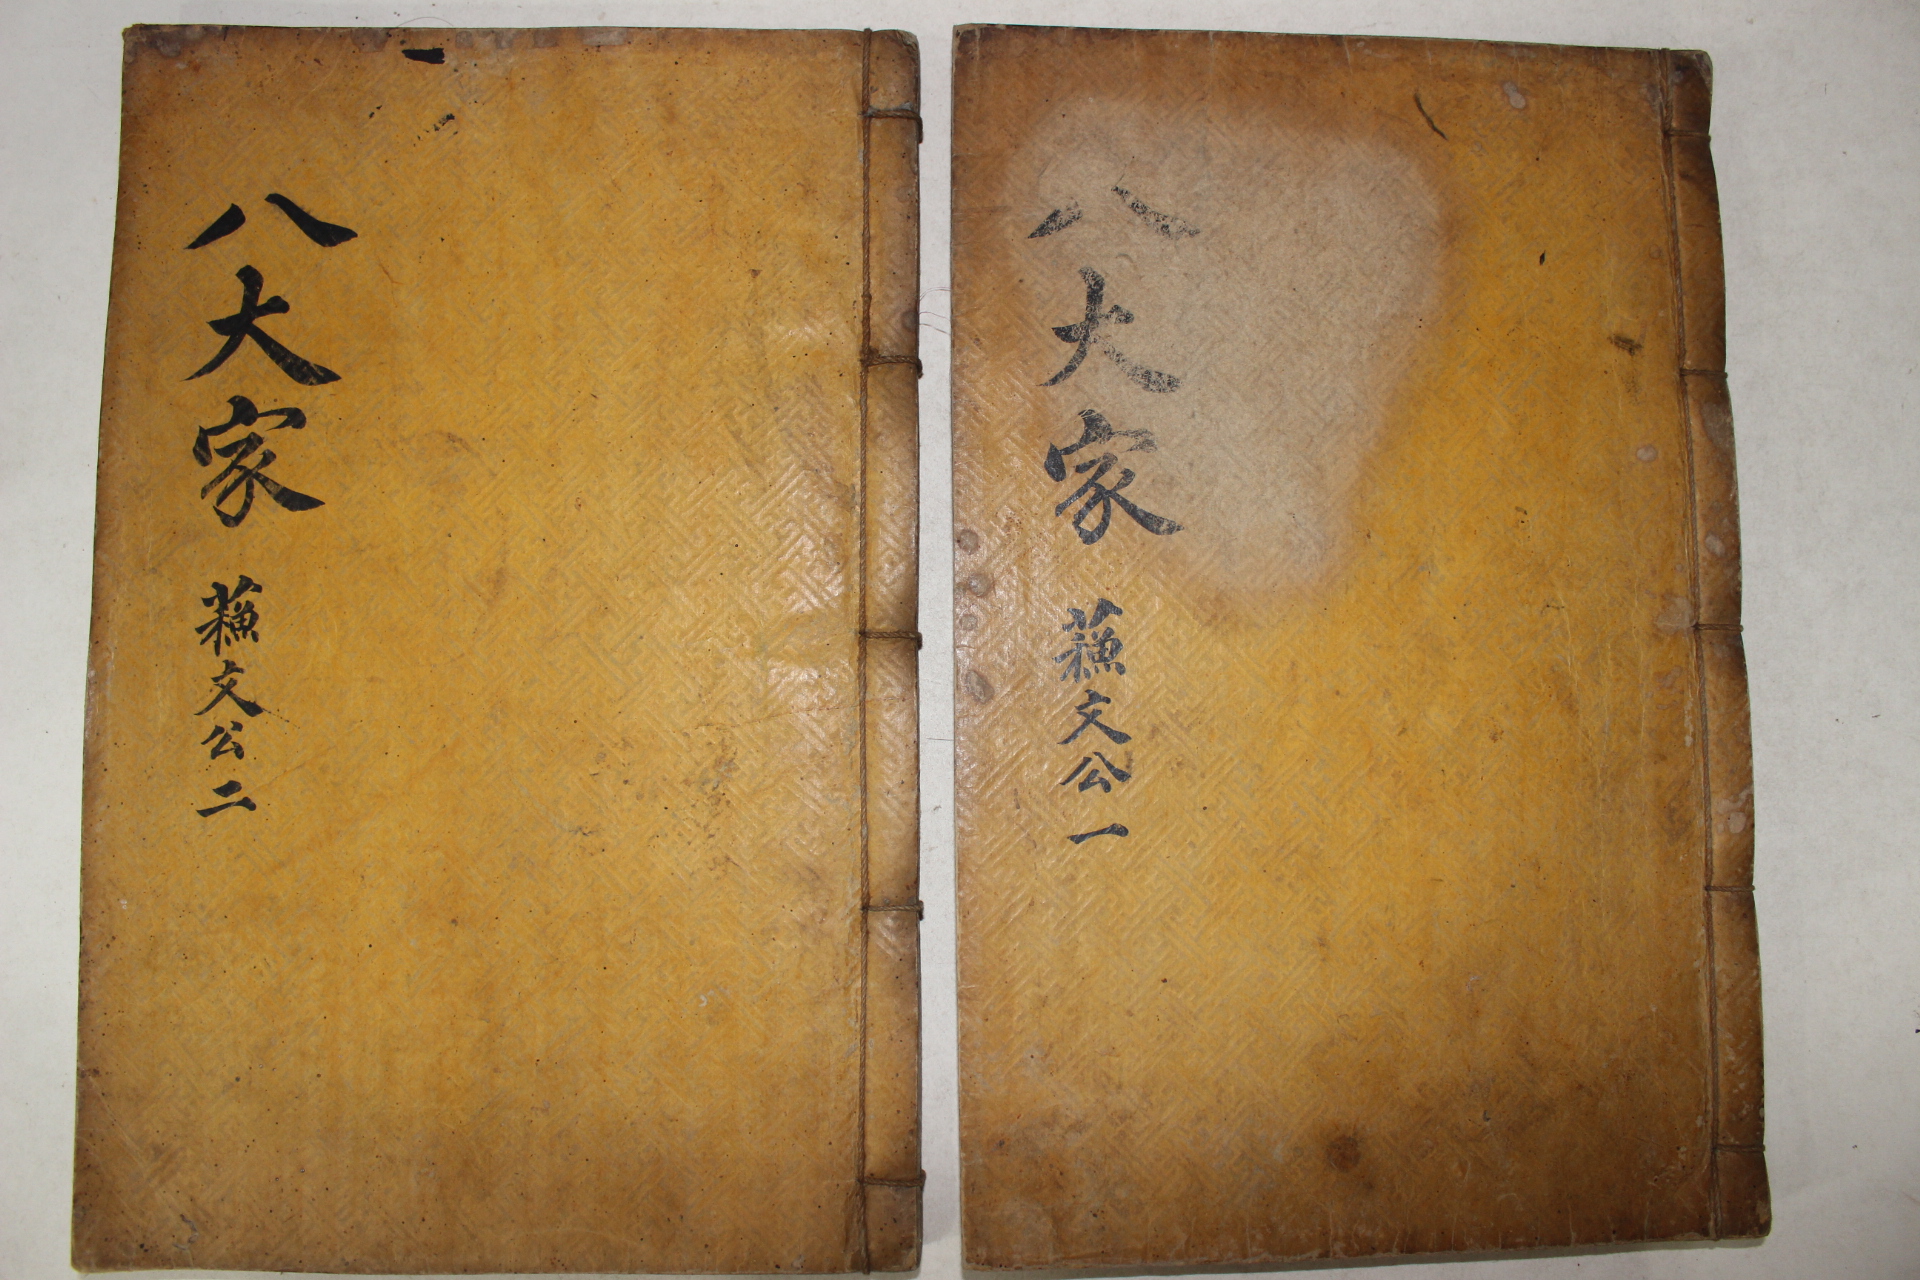 八大家 蘓文公 一
八大家 蘓文公 二